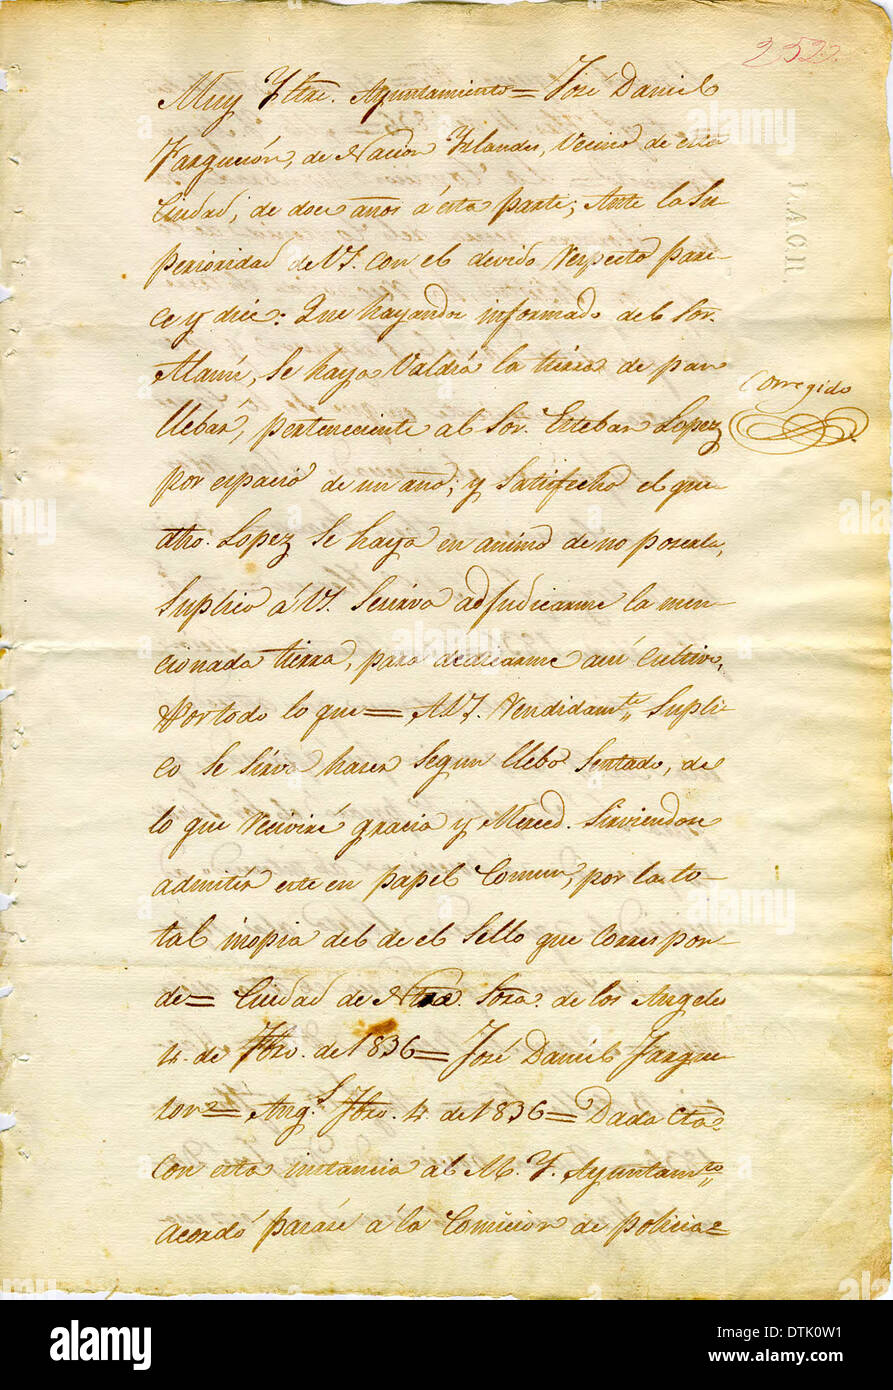 252.
Muy Yltre. Ayuntamiento = José Daniel
Fargueson, de Nacion Yrlandes, Vecino de esta
Ciudad, de doce años á esta parte; Ante la Su
perioridad de V.S. con el devido respecto pare-
ce y dice: Que hayandose informado del Sor.
Alamir, se haya Valdia la tierra de pan
llebar, perteneciente al Sor. Esteban Lopez
por espacio de un año; y satisfecho el que
dho. Lopez se haya en animo de no poseerla,
Suplico á V.S. Se sirva adjudicarme la men-
cionada tierra, para dedicarme asu cultivo,
Por todo lo que = A V.S. Rendidamte. Supli-
co se sirva haser segun llebo sentado, de
lo que recivire gracia y Merced. Sirviendose
admitir este en papel Comun, por la to-
tal inopia del de el Sello que corres pon-
de = Ciudad de Ntra. Sora. de los Angeles
4. de Fbro. de 1836 = José Daniel Fargue
son = Angs. Fbro. 4. de 1836 = Dada Cta
con esta instancia al M. Y. Ayuntamto.
acordó pasáse á la Comicion de policia =
Corregido
L.A.C.R.
alamy
DTK0W1
www.alamy.com